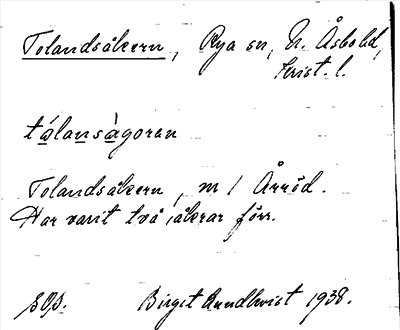 Tolandsåkern, Rya sn, N. Åsbold,
Krist. l.
tålansågoran
Tolandsåkern, m / Årröd.
Har varit två åkrar förr.
Birgit Lundkvist 1938.